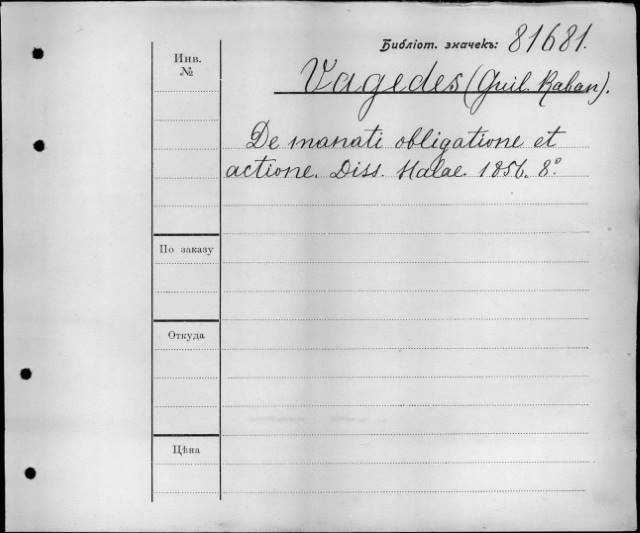 Библіот. значекъ: 81681.
Инв.
№
Vagedes (Guil. Raban).
De manati obligatione et
actione. Diss. Halae. 1856. 8°.
По заказу
Откуда
Цѣна